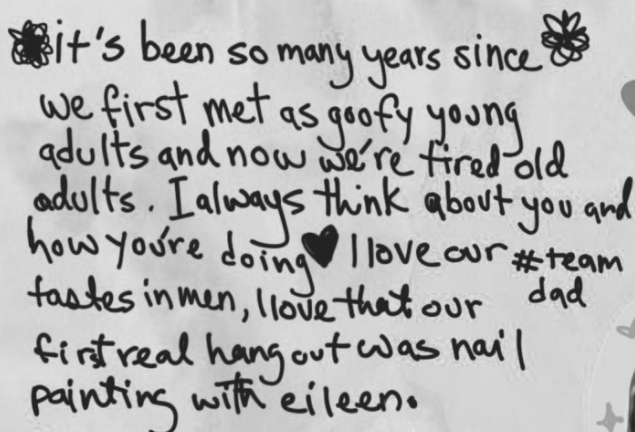 it's been so many years since
we first met as goofy young
adults and now we're tired old
adults. I always think about you and
how you're doing♥ I love our #team
tastes in men, I love that our dad
first real hang out was nail
painting with eileen.